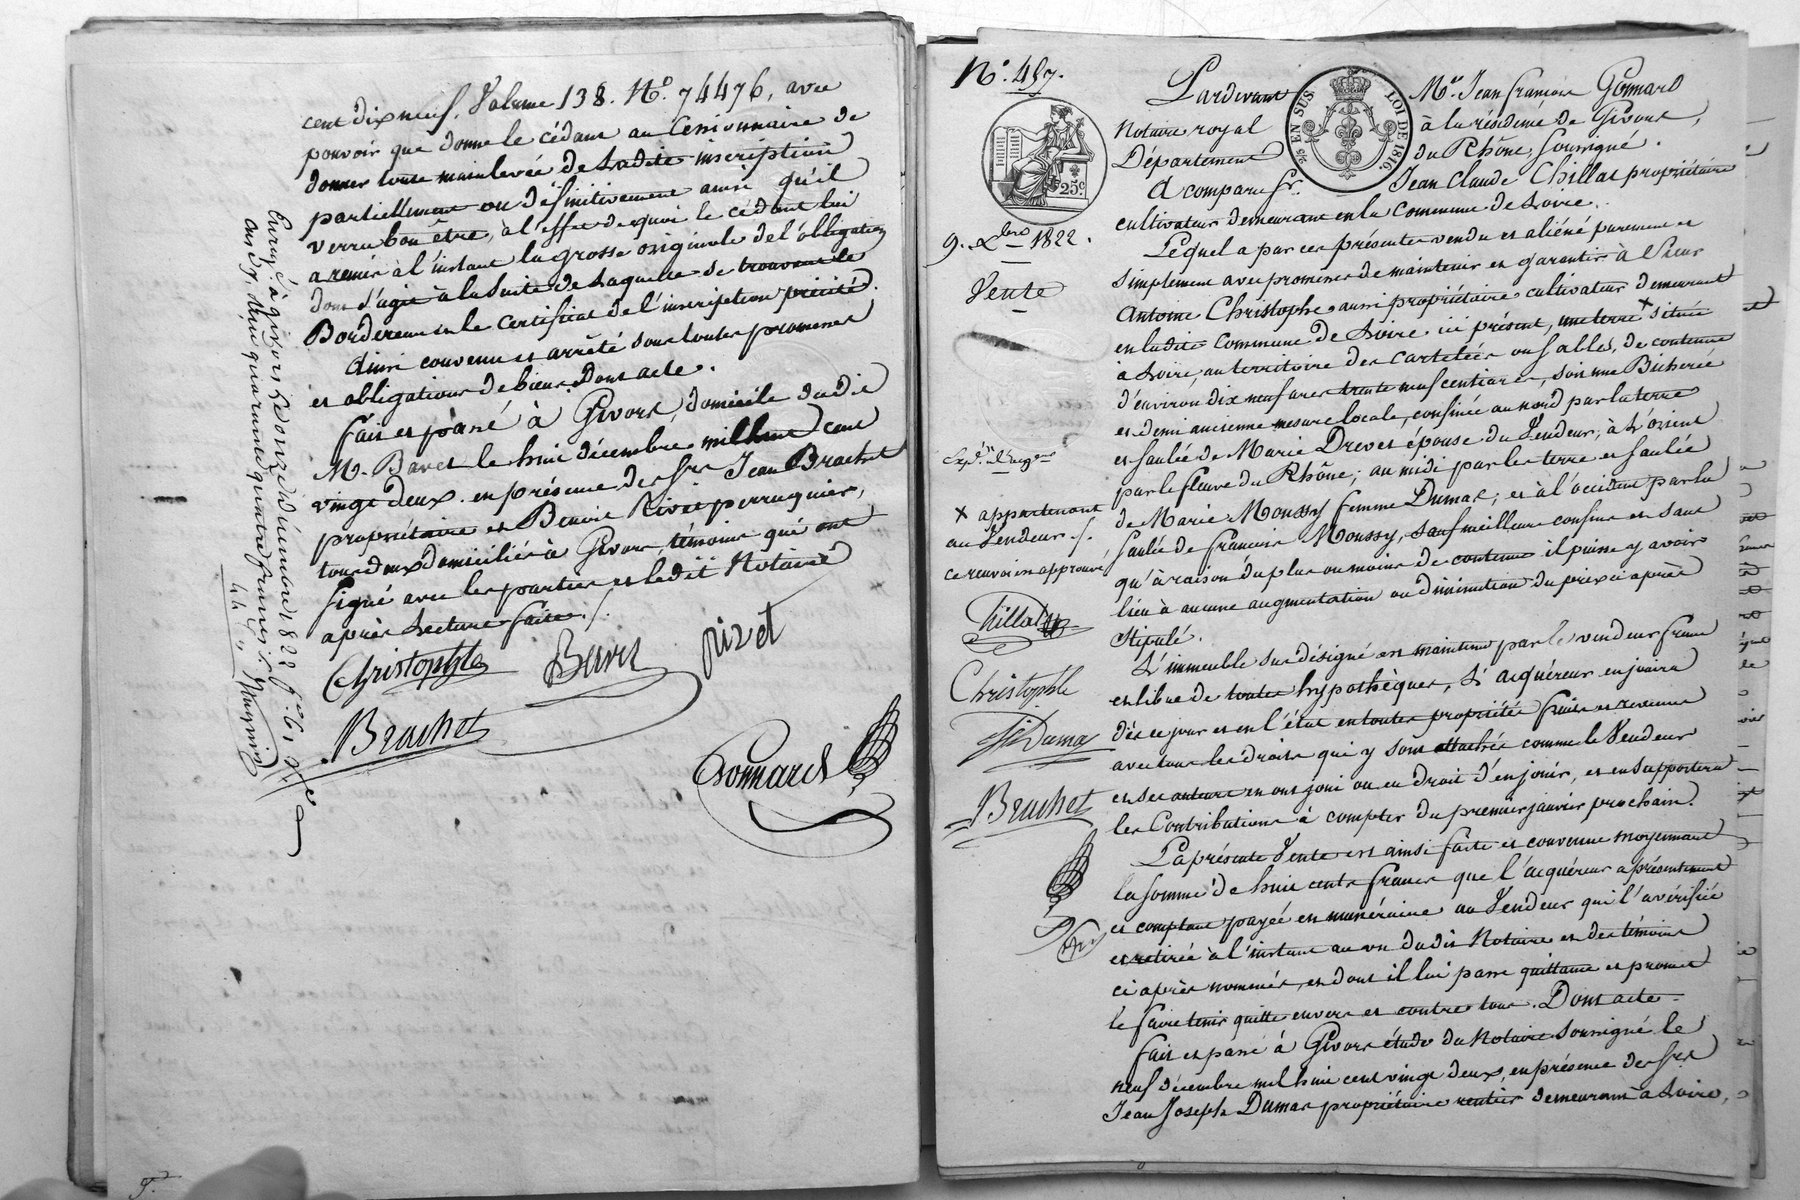 cent dix neuf. Volume 138. N.o 74476, avec
pouvoir que donne le cédant au Cessionnaire de
donner toute mainlevée de Ladite inscription
partiellement ou définitivement ainsi qu'il
verra bon être, à l'effet de quoi le cédant lui
a remis à l'instant la grosse originale de l'obligation
dont s'agit à la suite de Laquelle se trouvent le
Bordereau et le certificat de l'inscription précité.
Ainsi convenu et arrêté sous toutes promesses
et obligations de biens. Dont acte.
fait et passé à Givors, domicile dudit
M. Bavet le huit décembre mil huit cent
vingt deux. en présence des Srs Jean Brachet
propriétaire et Benoit Rivet perruquier,
tous deux domiciliés à Givors, témoins qui ont
signé avec les parties et ledit Notaire
après Lecture faite./.
Christophle Bavet Rivet
Brachet
Gonnard
Enreg.é à givors le onze décembre 1822 f.o 61
quarante quatre francs
44 "
N.o 457.
25.c
9. Xbre 1822.
Vente
Exp.on
x appartenant
au Vendeur ./.
ce renvoi est approuvé
Chillat
Christophle
JJ Dumas
Brachet
25 EN SUS LOI DE 1816
Pardevant M.e Jean françois Gonnard
Notaire royal à la résidence de Givors,
Département du Rhône, soussigné.
A comparu sr. Jean Claude Chillat propriétaire
cultivateur demeurant en la commune de Loire.
Lequel a par ces présentes vendu et aliéné purement et
simplement avec promesse de maintenir et garantir à Sieur
Antoine Christophle aussi propriétaire cultivateur demeurant
en ladite Commune de Loire ici présent, une terre x située
à Loire, au territoire des Cartelées ou sables, de contenue
d'environ dix neuf ares trente neuf centiares, soit une Bicherée
et demi ancienne mesure locale, confinée au nord par la terre
et saulée de Marie Drevet épouse du Vendeur, à L'orient
par le fleuve du Rhône; au midi par les terre et saulée
de Marie Moussy femme Dumas; et à l'occident par la
saulée de François Moussy, sauf meilleurs confins et sans
qu'à raison du plus ou moins de contenue il puisse y avoir
lieu à aucune augmentation ou diminution du prix ci après
stipulé.
L'immeuble sus désigné est maintenu par le vendeur franc
et libre de toutes hypothèques, L'acquéreur en jouira
dès ce jour et en l'état en toutes propriétés fruits et revenus
avec tous les droits qui y sont attachés comme le Vendeur
et ses auteurs en ont joui ou eu droit d'en jouir, et en supportera
les Contributions à compter du premier janvier prochain.
La présente Vente est ainsi faite et convenue moyennant
la somme de huit cents francs que l'acquéreur a présentement
et comptant payée en numéraire au Vendeur qui l'a vérifiée
et retirée à l'instant au vu dudit Notaire et des témoins
ci après nommés, et dont il lui passe quittance et promet
le faire tenir quitte envers et contre tous. Dont acte.
fait et passé à Givors étude du Notaire soussigné le
neuf décembre mil huit cent vingt deux, en présence des Srs
Jean Joseph Dumas propriétaire rentier demeurant à Loire,